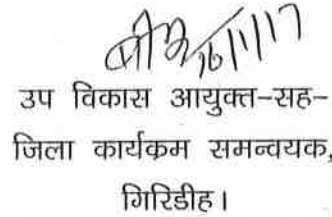 16/1/17
उप विकास आयुक्त-सह-
जिला कार्यकम समन्वयक,
गिरिडीह।